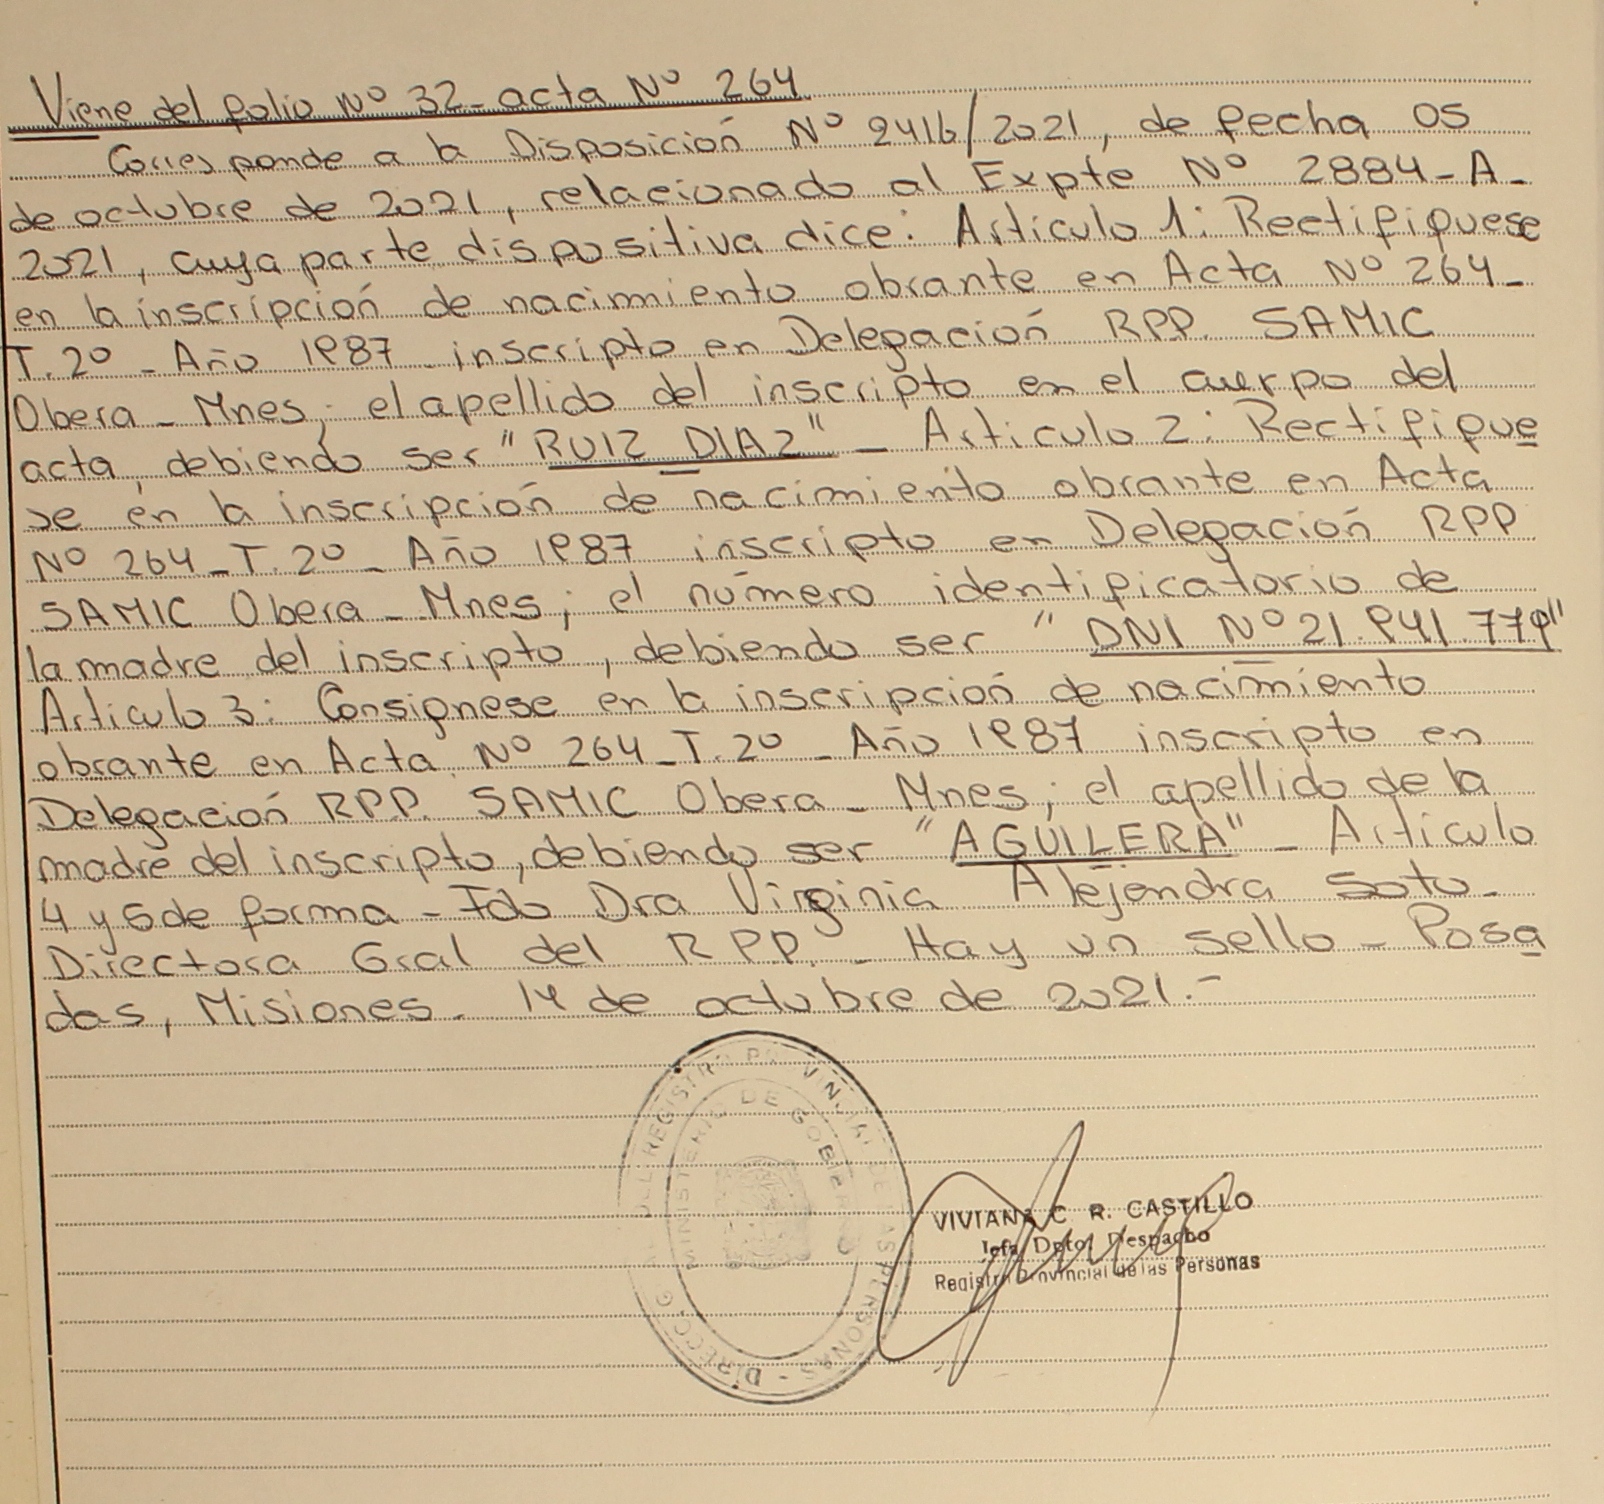 Viene del folio Nº 32 - acta Nº 264
Corresponde a la Disposición Nº 2416/2021, de fecha 05
de octubre de 2021, relacionado al Expte Nº 2884-A-
2021, cuya parte dispositiva dice: Artículo 1: Rectifiquese
en la inscripción de nacimiento obrante en Acta Nº 264-
T. 2º - Año 1987 inscripto en Delegación RPP. SAMIC
Obera - Mnes; el apellido del inscripto en el cuerpo del
acta, debiendo ser "RUIZ DIAZ" - Artículo 2: Rectifique
se en la inscripción de nacimiento obrante en Acta
Nº 264 - T. 2º - Año 1987 inscripto en Delegación RPP
SAMIC Obera - Mnes; el número identificatorio de
la madre del inscripto, debiendo ser "DNI Nº 21.941.779"
Artículo 3: Consignese en la inscripción de nacimiento
obrante en Acta Nº 264 - T. 2º - Año 1987 inscripto en
Delegación RPP. SAMIC Obera - Mnes; el apellido de la
madre del inscripto, debiendo ser "AGUILERA" - Artículo
4 y 5 de forma - Fdo Dra Virginia Alejandra Soto -
Directora Gral del RPP. - Hay un sello - Posa
das, Misiones. 14 de octubre de 2021.-
DIRECC. G DEL REGISTRO PROVINCIAL DE LAS PERSONAS -
MINISTERIO DE GOBIERNO
VIVIANA C. R. CASTILLO
Jefa Dpto. Despacho
Registro Provincial de las Personas